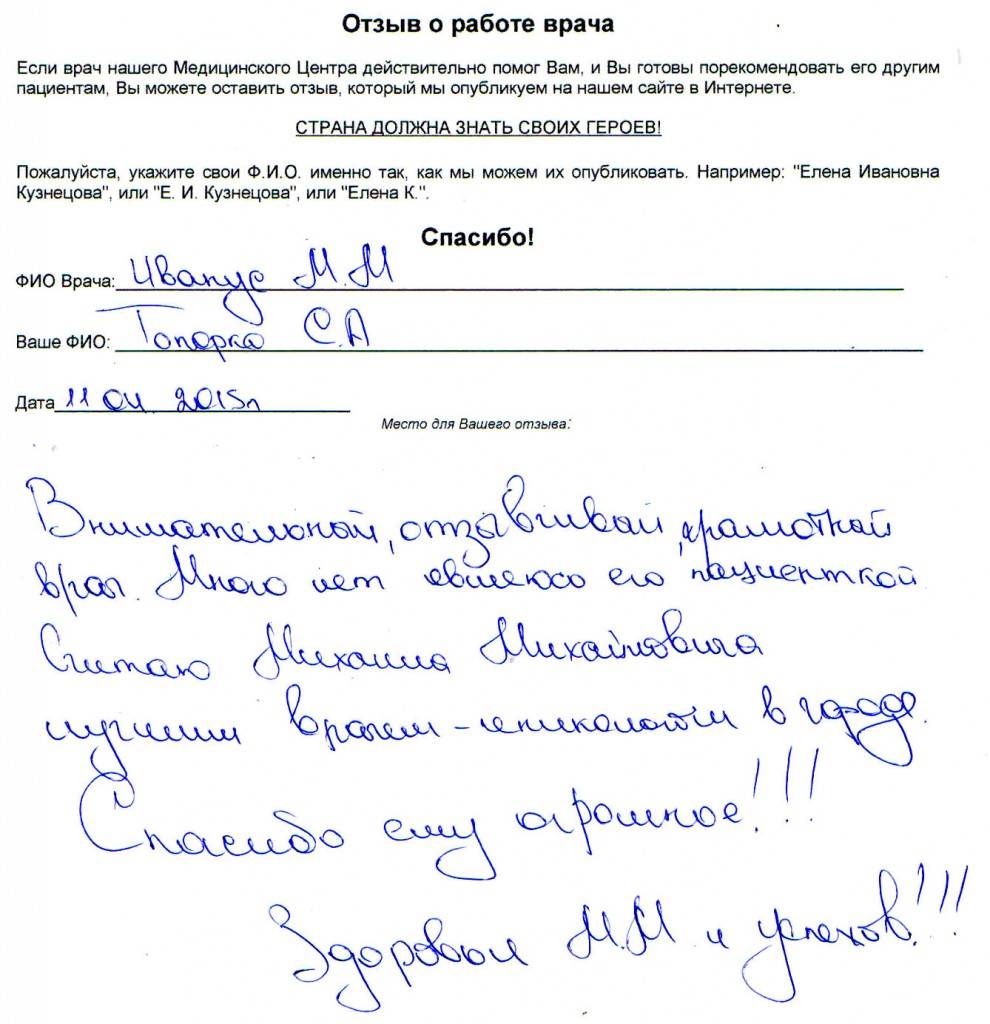 Отзыв о работе врача
Если врач нашего Медицинского Центра действительно помог Вам, и Вы готовы порекомендовать его другим
пациентам, Вы можете оставить отзыв, который мы опубликуем на нашем сайте в Интернете.
СТРАНА ДОЛЖНА ЗНАТЬ СВОИХ ГЕРОЕВ!
Пожалуйста, укажите свои Ф.И.О. именно так, как мы можем их опубликовать. Например: "Елена Ивановна
Кузнецова", или "Е. И. Кузнецова", или "Елена К.".
Спасибо!
ФИО Врача: М.М
Ваше ФИО: Топорко С.А
Дата 11 04 2015г
Место для Вашего отзыва:
Внимательный, отзывчивый, грамотный
врач. Много лет являюсь его пациенткой
Считаю Михаила Михайловича
лучшим врачем-гинекологом в городе.
Спасибо ему огромное!!!
Здоровья М.М и успехов!!!